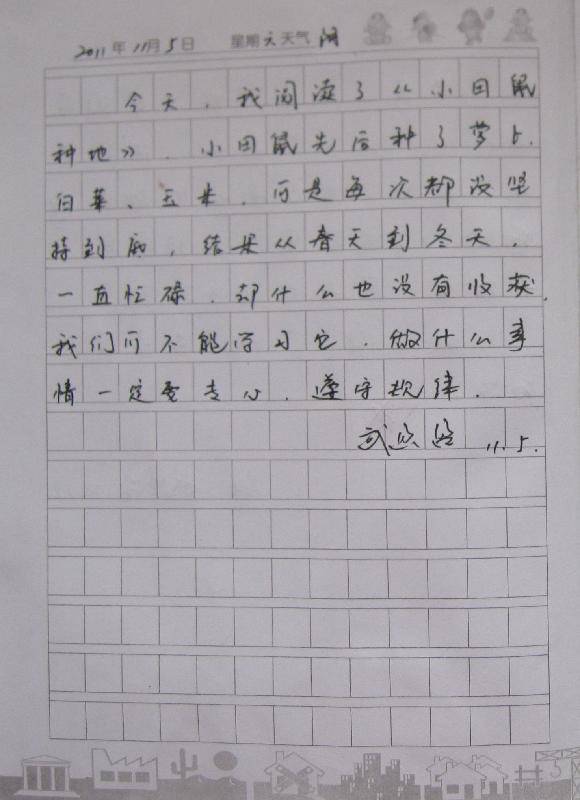 2011年11月5日 星期六天气阴
今天，我阅读了《小田鼠
种地》．小田鼠先后种了萝卜．
白菜、玉米．可是每次都没坚
持到底，结果从春天到冬天，
一直忙碌．却什么也没有收获．
我们可不能学习它．做什么事
情一定要专心．遵守规律．
11.5.